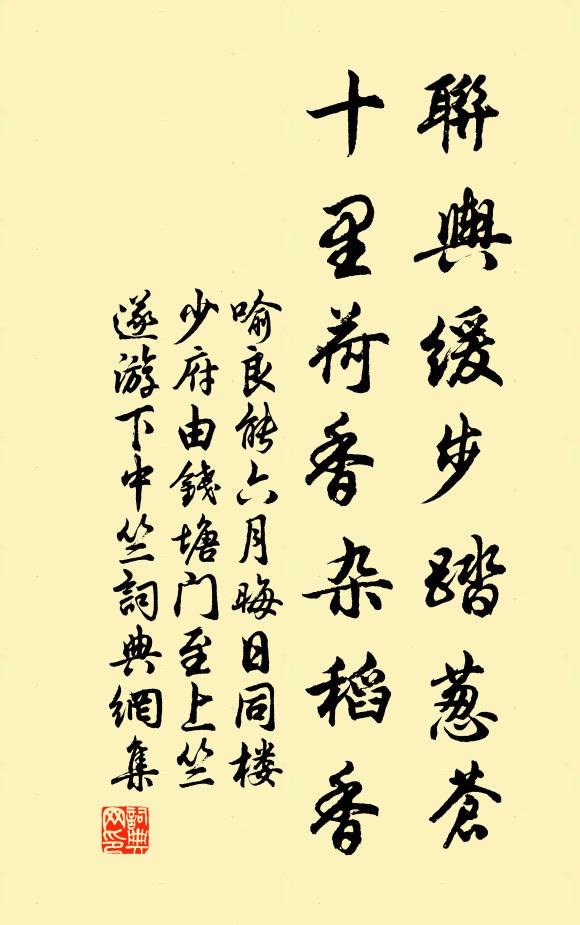 聯輿緩步踏葱蒼
十里荷香杂稻香
喻良能六月晦日同楼
少府由錢塘门至上竺
遂游下中竺詞典網集
詞典网印